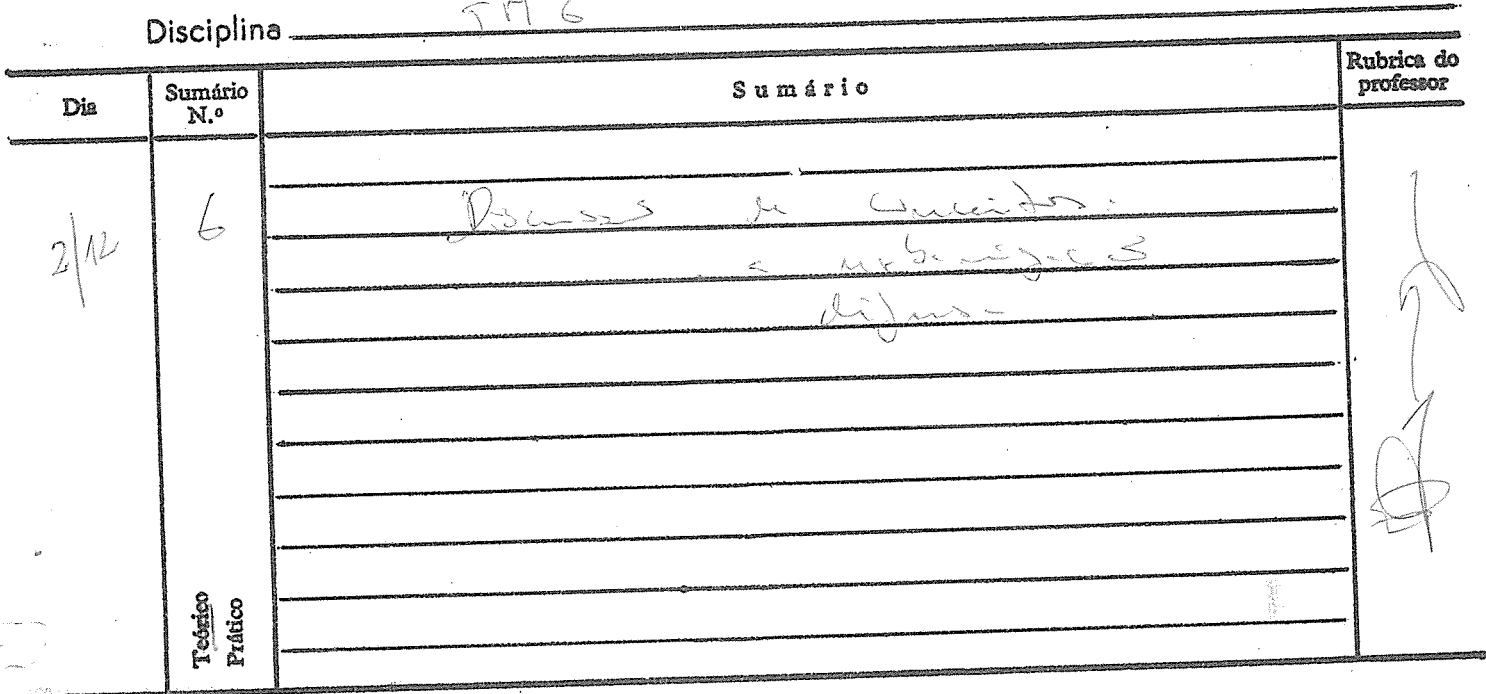 Disciplina TM 6
Dia
Sumário N.º
Sumário
Rubrica do professor
2/12
6
Discussão de conceitos:
a urbanização
difusa
Teórico
Prático